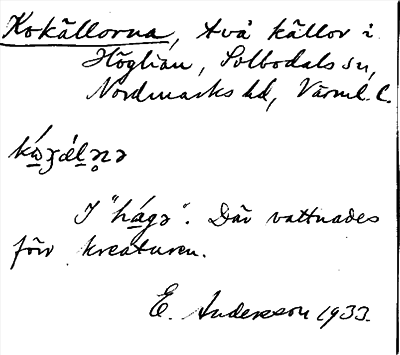 Kokällorna, två källor i
Höglian, Silbodals sn,
Nordmarks hd, Värml. l.
I "hágə". Där vattnades
förr kreaturen.
E. Andersson 1933.